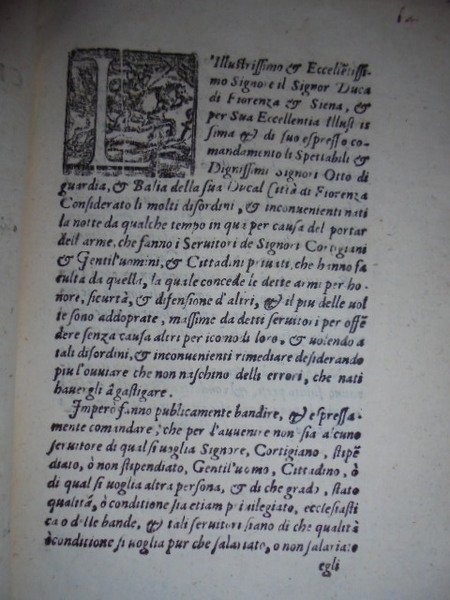 L'Illustrissimo & Eccellẽtissi
mo Signore il Signor Duca
di Fiorenza & Siena, &
per Sua Eccellentia Illustris
sima & di suo espresso co-
mandamento li Spettabili &
Dignissimi Signori Otto di
guardia, & Balia della sua Ducal Città di Fiorenza
Considerato li molti disordini, & inconuenienti nati
la notte da qualche tempo in qua per causa del portar
dell'arme, che fanno i Seruitori de Signori Cortigiani
& Gentil'uomini, & Cittadini priuati, che hanno fa
culta da quella, la quale concede le dette armi per ho-
nore, sicurtà, & difensione d'altri, & il piu delle vol
te sono addoprate, massime da detti seruitori per offẽ
dere senza causa altri per icomodi loro, & volendo a
tali disordini, & inconuenienti rimediare desiderando
piu l'ouuiare che non naschino delli errori, che nati
hauergli à gastigare.
Imperò fanno publicamente bandire, & espressa-
mente comandare, che per l'auuenire non sia alcuno
seruitore di qual si voglia Signore, Cortigiano, stipẽ
diato, ò non stipendiato, Gentil'uomo, Cittadino, ò
di qual si voglia altra persona, & di che grado, stato
qualità, ò conditione sia etiam priuilegiato, ecclesiasti
co o delle bande, & tali seruitori siano di che qualità
ò conditione si voglia pur che salariato, o non salariato
egli